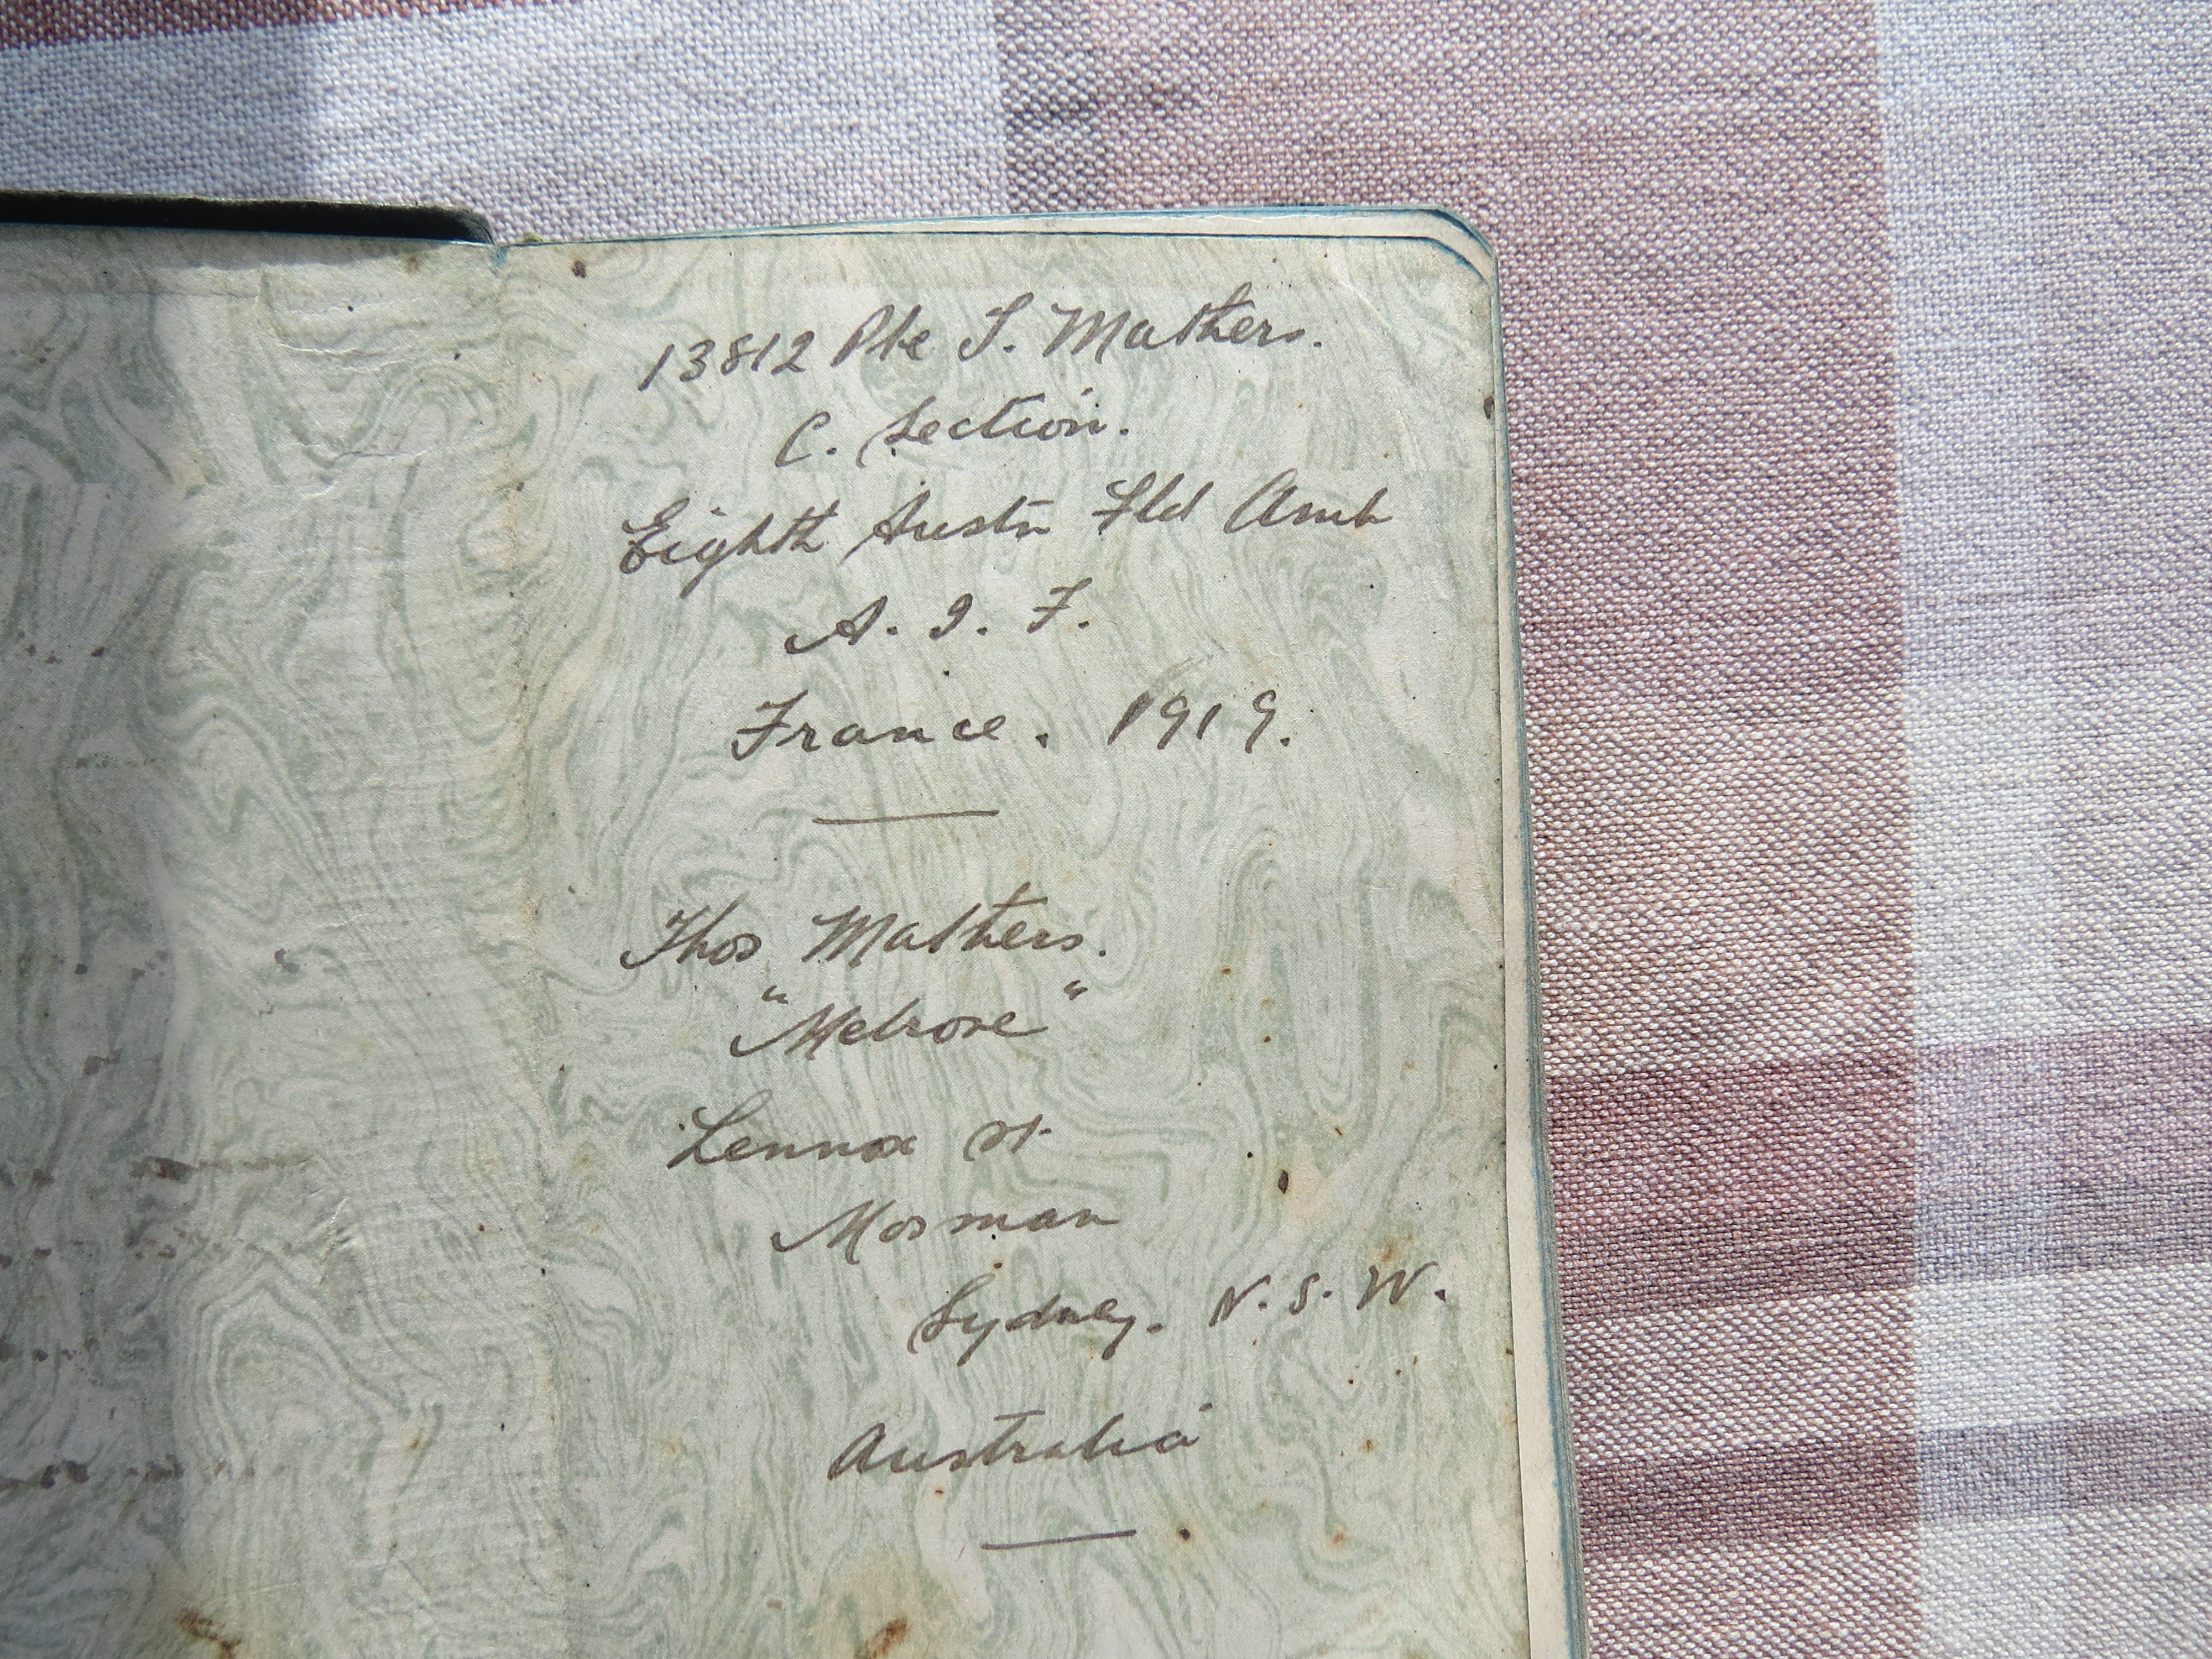 13812 Pte T. Mathers.
C. Section.
Eighth Austn Fld Amb
A. I. F.
France. 1919.
Thos Mathers.
"Melrose"
Lennox St
Mosman
Sydney. N. S. W.
Australia